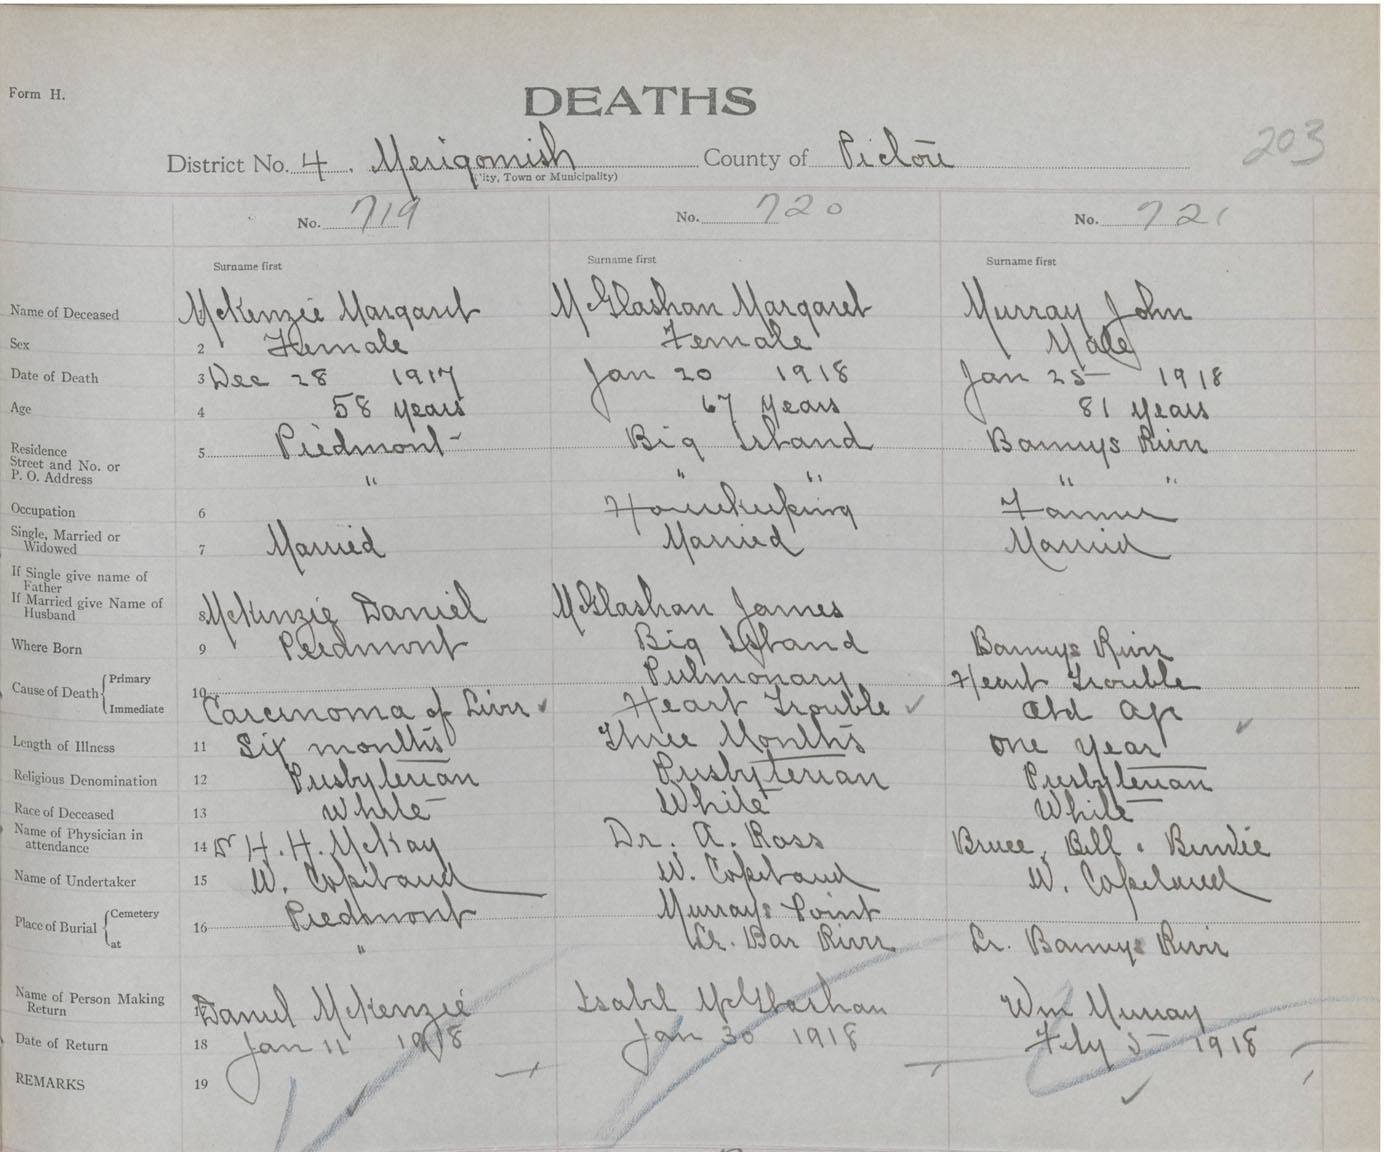 Form H.
DEATHS
203
District No. 4. Merigomish County of Pictou
(City, Town or Municipality)
No. 719 No. 720 No. 721
Surname first Surname first Surname first
Name of Deceased McKenzie Margaret McGlashan Margaret Murray John
Sex 2 Female Female Male
Date of Death 3 Dec 28 1917 Jan 20 1918 Jan 25 1918
Age 4 58 years 67 years 81 years
Residence
Street and No. or
P. O. Address 5 Piedmont Big Island Barneys River
" " " " "
Occupation 6 Housekeeping Farmer
Single, Married or
Widowed 7 Married Married Married
If Single give name of
Father
If Married give Name of
Husband 8 McKenzie Daniel McGlashan James
Where Born 9 Piedmont Big Island Barneys River
Cause of Death { Primary 10 Pulmonary Heart Trouble
Immediate Carcinoma of Liver Heart Trouble Old Age
Length of Illness 11 Six months Three Months one year
Religious Denomination 12 Presbyterian Presbyterian Presbyterian
Race of Deceased 13 White White White
Name of Physician in
attendance 14 Dr H. H. McKay Dr. A. Ross Bruce, Bell
Name of Undertaker 15 W. Copeland W. Copeland W. Copeland
Place of Burial { Cemetery 16 Piedmont Murrays Point
at " Lr. Bar River Lr. Barneys River
Name of Person Making
Return 17 Daniel McKenzie Isabel McGlashan Wm Murray
Date of Return 18 Jan 11 1918 Jan 30 1918 Feby 5 1918
REMARKS 19